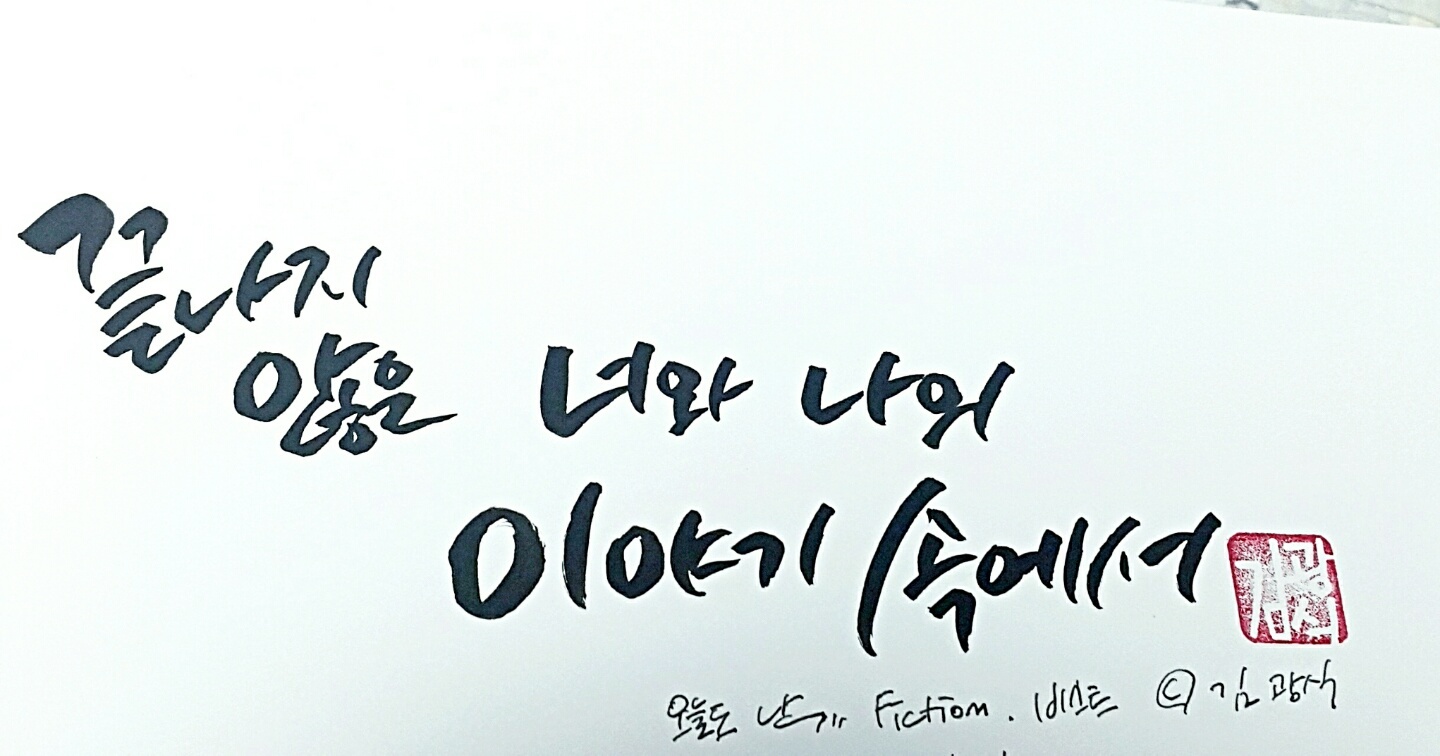 끝나지
않은 너와 나의
이야기 속에서
김광식
오늘도 난 Fiction. 비스트 ⓒ 김광식